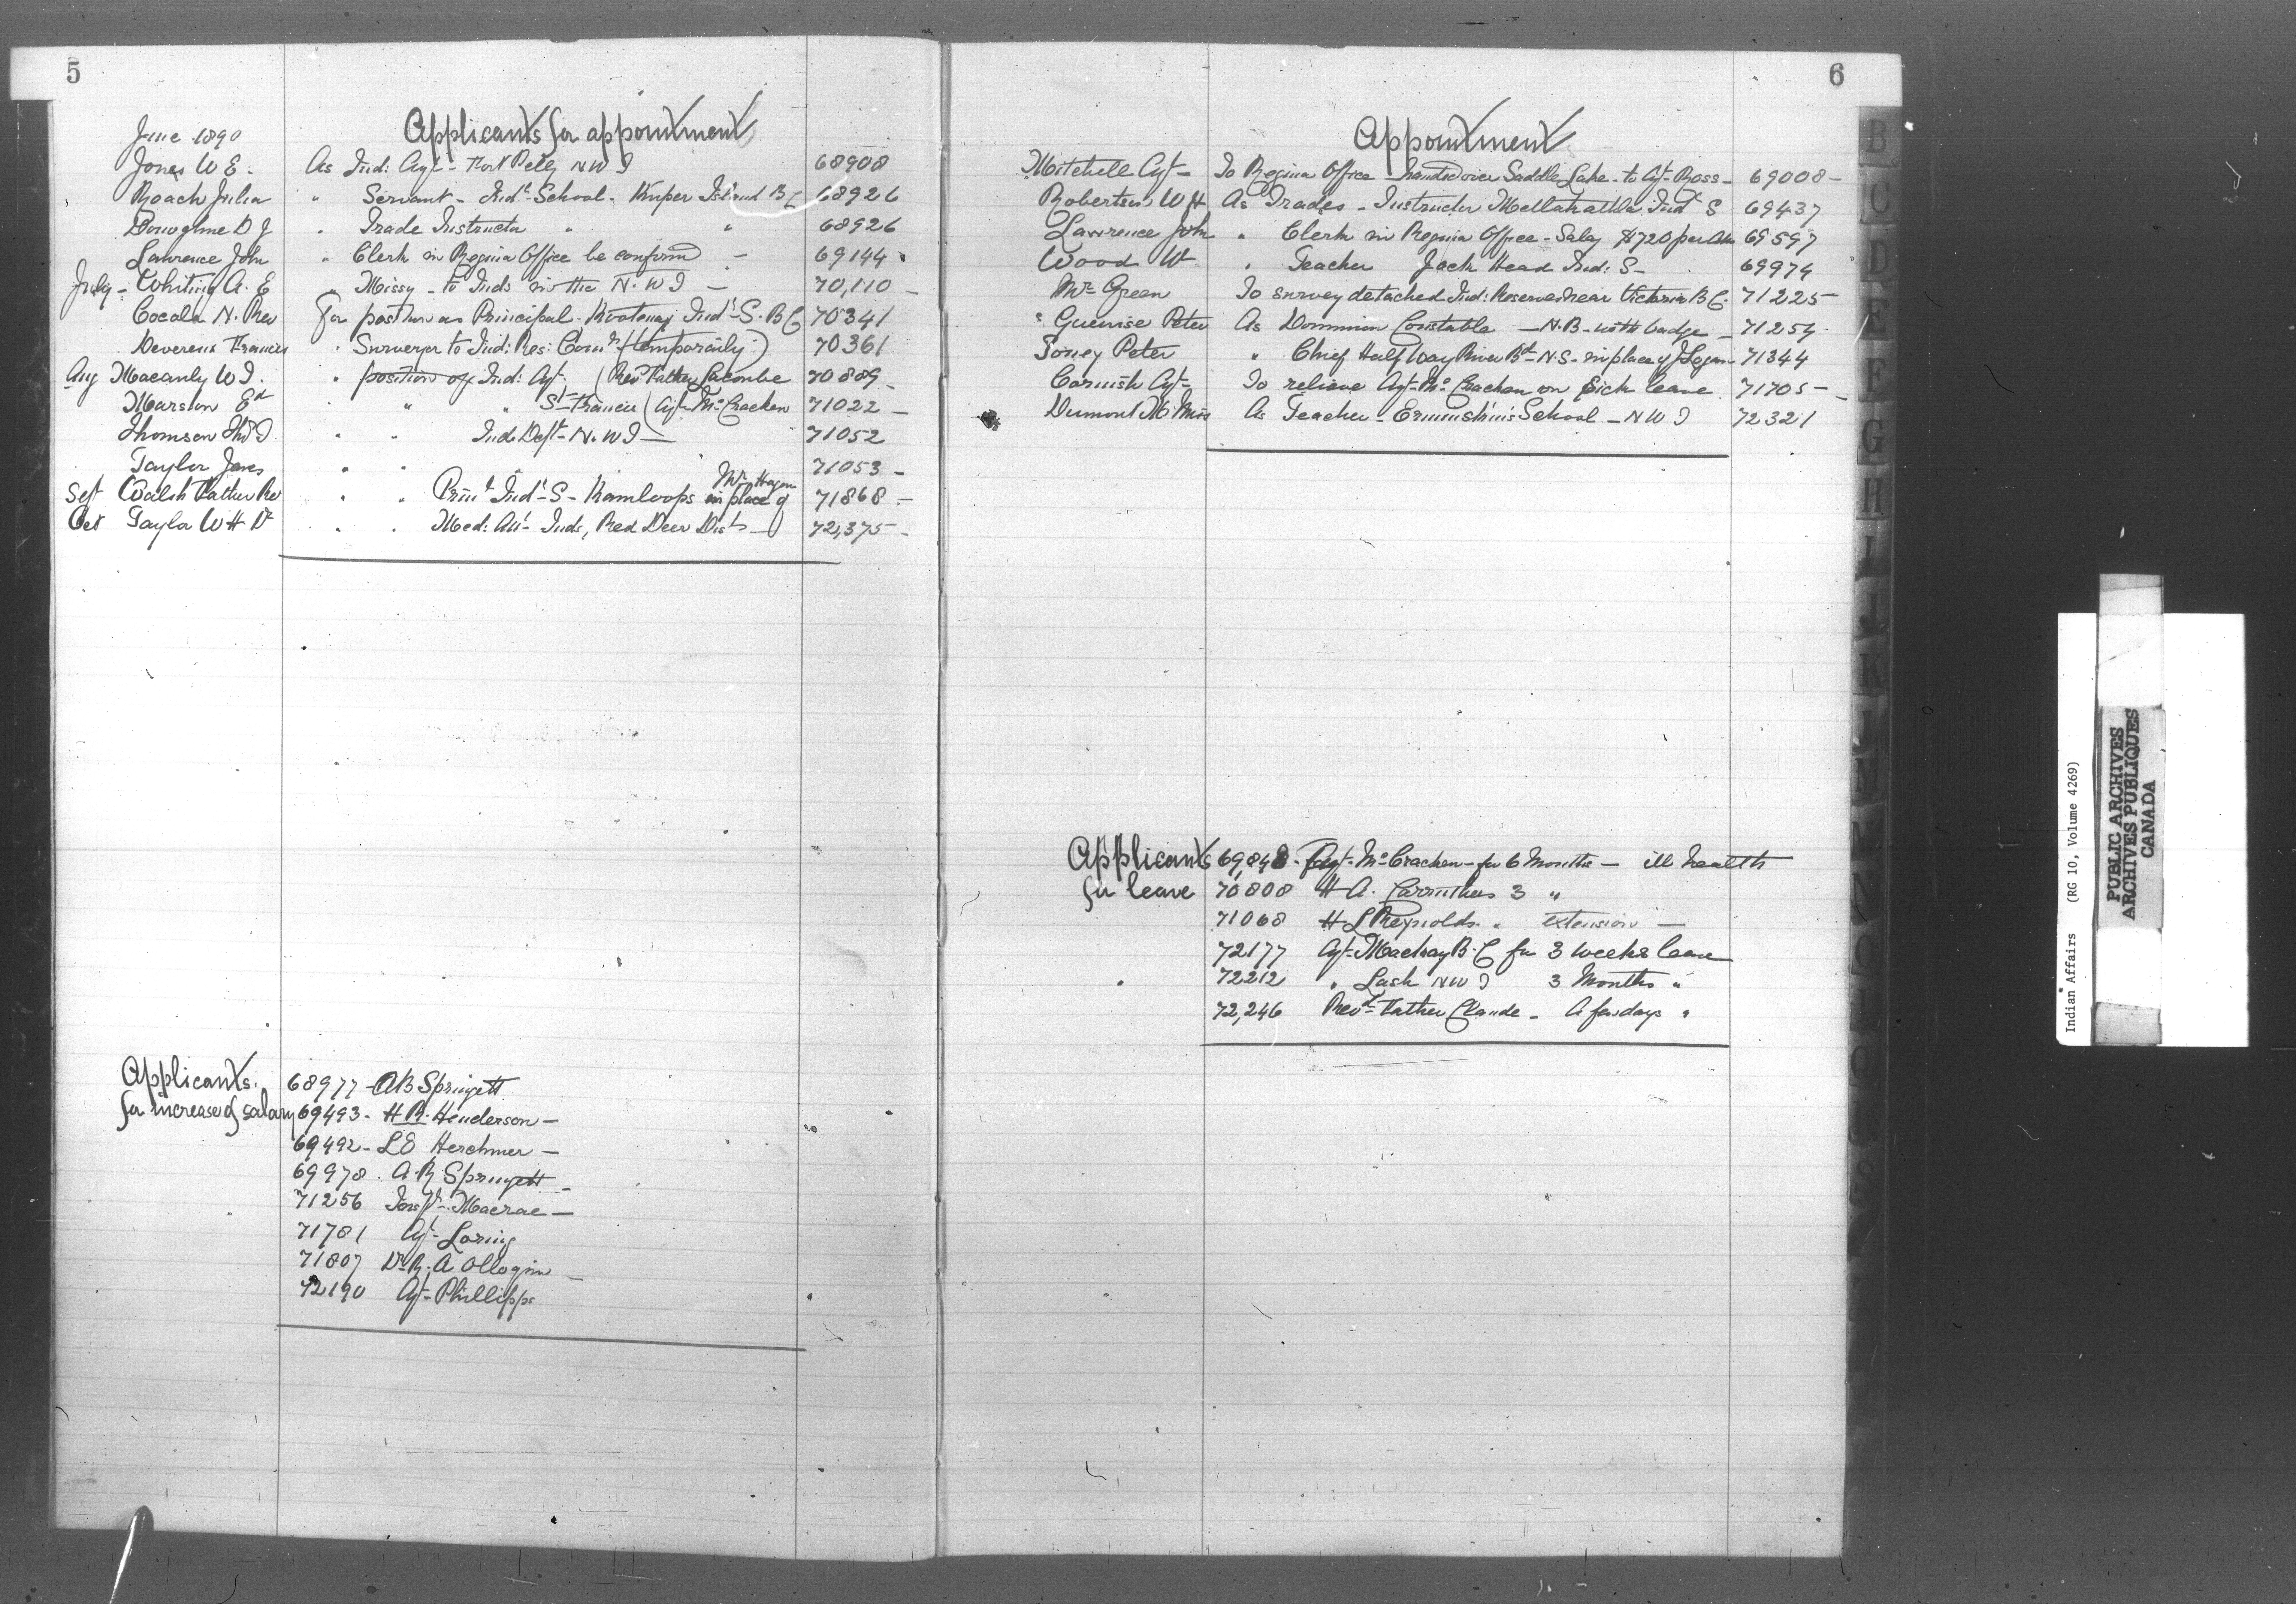 5
Applicants for appointment
June 1890
Jones W E. As Ind: Agt - Fort Pelly N W T 68908
Roach Julia " Servant - Indl School - Kuper Island B C 68926
Donoghue D J " Trade Instructor " " 68926
Lawrence John " Clerk in Regina Office be confirmd - 69144
July - Whiting A. E " Missy - to Inds in the N. W T - 70,110 -
Cocola N. Rev For position as Principal - Kootenay Indl S. B C 70341
Devereux Francis " Surveyor to Ind: Res: Comr (temporarily) 70361
Aug Macauly W T. " position of Ind: Agt. (Revd Father Lacombe 70889 -
Marston Ed " " St Francis (Agt McCracken 71022 -
Thomson Thos T " " Ind. Dept - N. W T - 71052
Taylor James " " 71053 -
Sept Walsh Father Rev " " Prinl Indl - S - Kamloops in place of Mr Hagan 71868 -
Oct Taylor W H Dr " " Med: Att - Inds, Red Deer Dist - 72,375 -
Applicants
for increase of salary
68977 - A B Springett
69493 - H R. Henderson -
69492 - L E Herchmer -
69978 . A R Springett -
71256 Inspr Macrae -
71781 Agt - Loring
71807 Dr R. A
72190 Agt - Phillipps
6
Appointment
Mitchell Agt - To Regina Office - handed over Saddle Lake - to Agt - Ross - 69008 -
Robertson W H As Trades - Instructor Metlakahtla Indl S 69437
Lawrence John " Clerk in Regina Office - Salay $720 per Ann 69597
Wood W " Teacher Jack Head Ind: S - 69974
Mr Green To survey detached Ind: Reserves near Victoria B C. 71225 -
" Peter As Dominion Constable - N. B - with badge - 71254 -
Toney Peter " Chief Half Way River Bd - N. S - in place of J Logan 71344
Cornish Agt - To relieve Agt - McCracken on Sick leave 71705 -
Dumont M. Miss As Teacher - Ermineskin's School - N W T 72321
Applicants
for leave
69,848 - Agt - McCracken - for 6 Months - ill health
70808 H A. Carruthers 3 "
71068 H L Reynolds " extension -
72177 Agt - Mackay B. C for 3 weeks leave
72212 " Lash N W T 3 Months "
72,246 Revd Father Claude - A few days "
B
C
D
E
F
G
H
I
J
K
Indian Affairs (RG 10, Volume 4269)
PUBLIC ARCHIVES
ARCHIVES PUBLIQUES
CANADA